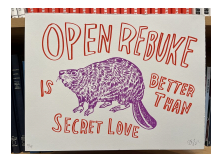 OPEN REBUKE
IS BETTER
THAN
SECRET LOVE